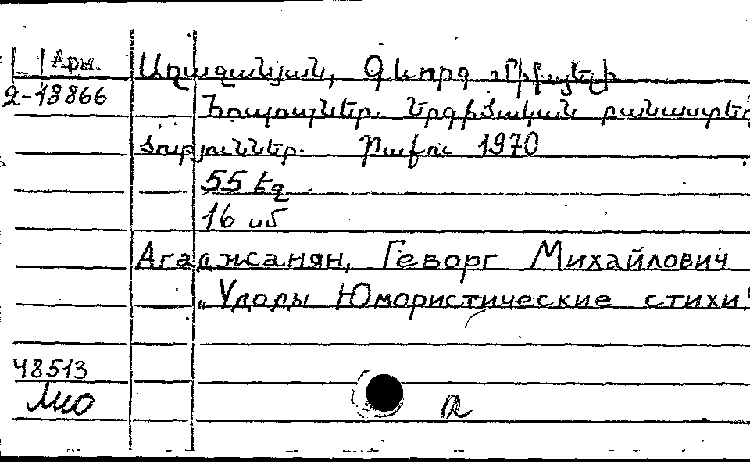 Арм.
Աղաջանյան, Գևորգ Միխայելի
2-18866
Երգիծական բանաստեղ
ծություններ. Բաքու 1970
55 էջ
16 սմ
Агаджанян, Геворг Михайлович
„Удары Юмористические стихи"
48513
а